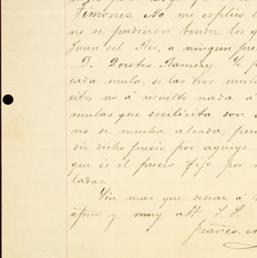 Timones. No me esplico l
no se pudieron bender los g
Juan del Rio, a ningun pre
D. Doroteo Ramirez. Y p
sada mula, si las tres mula
sito, no á resuelto nada a
mulas que socilicita son d
no se mucha alsada, pero
dir dicho precio, por aqueyo
que és el precio fijo por m
ladas.
Sin mas que desear á
afmo y muy att. S. S.
Franco.